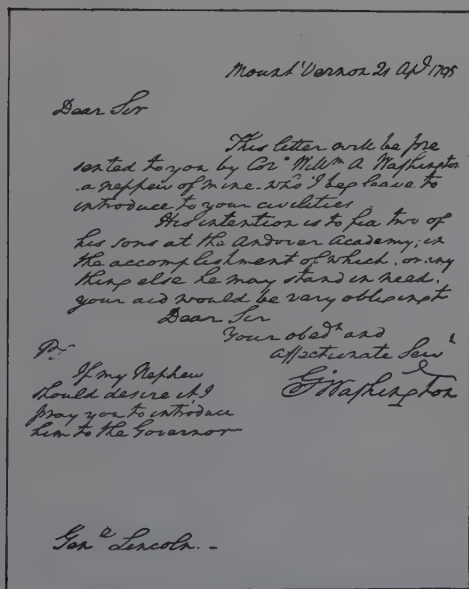 Mount Vernon 21 Apl 1795
Dear Sir
This letter will be pre
sented to you by Colo Willm A. Washington
a nephew of mine who I beg leave to
introduce to your civilities
His intention is to fix two of
his sons at the Andover Academy; in
the accomplishment of which, or any
thing else he may stand in need,
your aid would be very obliging to
Dear Sir
Your obedt and
Affectionate Servt
Go Washington
Ps.
If my Nephew
should desire it I
pray you to introduce
him to the Governor
Genl Lincoln. -